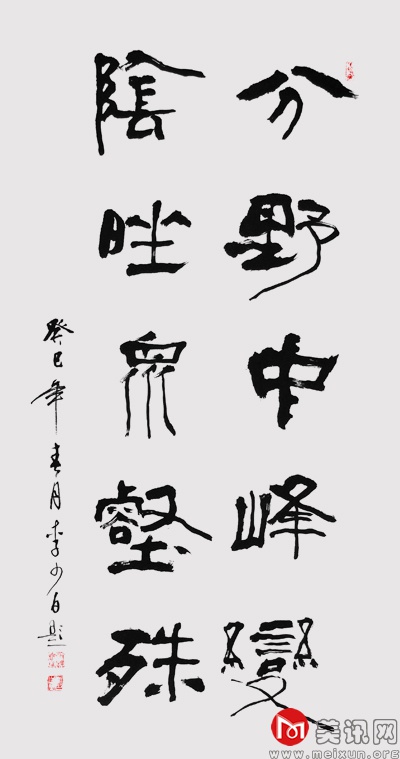 分野中峰變
陰晴衆壑殊
癸巳年春月李少白題
美讯网
www.meixun.org